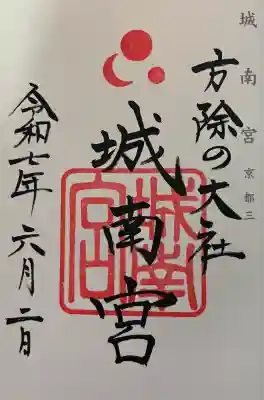 城南宮 京都三
方除の大社
城南宮
城南宮
令和七年 六月二日